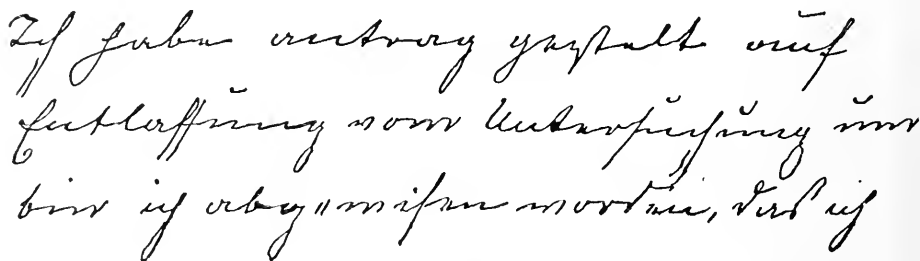 Ich habe antrag gestelt auf
Entlassung vom Untersuchung und
bin ich abgewisen worden, das ich